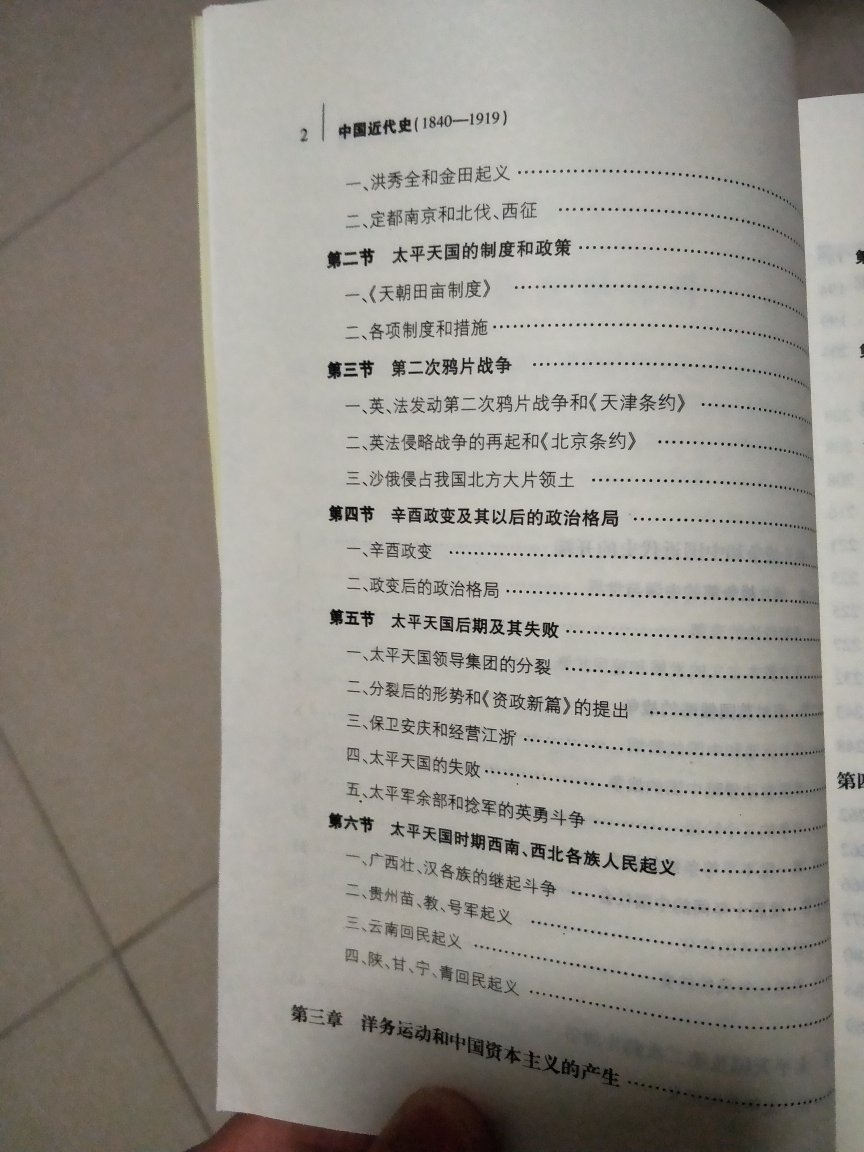 2 中国近代史(1840—1919)
一、洪秀全和金田起义
二、定都南京和北伐、西征
第二节 太平天国的制度和政策
一、《天朝田亩制度》
二、各项制度和措施
第三节 第二次鸦片战争
一、英、法发动第二次鸦片战争和《天津条约》
二、英法侵略战争的再起和《北京条约》
三、沙俄侵占我国北方大片领土
第四节 辛酉政变及其以后的政治格局
一、辛酉政变
二、政变后的政治格局
第五节 太平天国后期及其失败
一、太平天国领导集团的分裂
二、分裂后的形势和《资政新篇》的提出
三、保卫安庆和经营江浙
四、太平天国的失败
五、太平军余部和捻军的英勇斗争
第六节 太平天国时期西南、西北各族人民起义
一、广西壮、汉各族的继起斗争
二、贵州苗、教、号军起义
三、云南回民起义
四、陕、甘、宁、青回民起义
第三章 洋务运动和中国资本主义的产生
第四